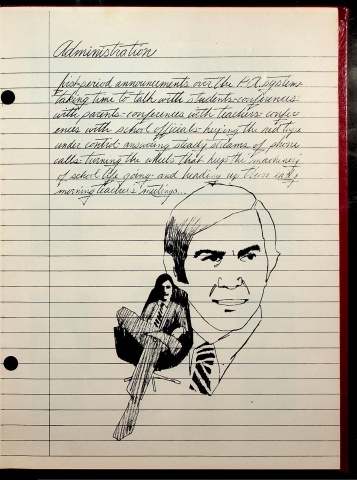 Administration
first period announcements over the P.A. system-
taking time to talk with students-conferences
with parents-conferences with teachers-confer-
ences with school officials-keeping the red tape
under control-answering steady streams of phone
calls-turning the wheels that keep the machinery
of school life going-and heading up those early
morning teacher's meetings...